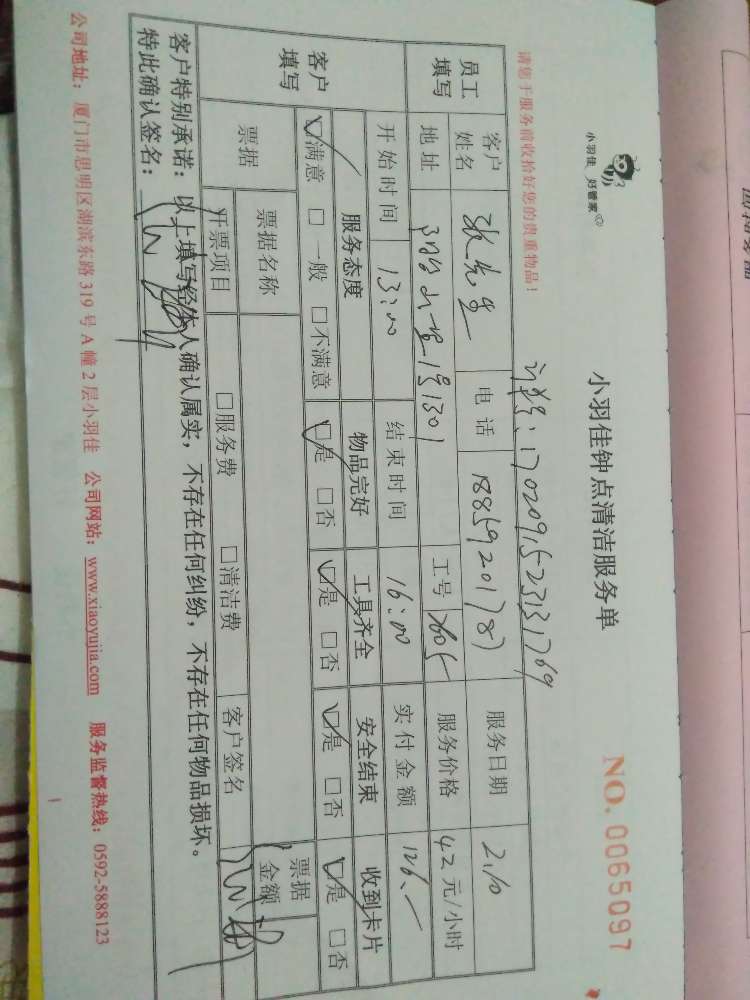 小羽佳 好管家
小羽佳钟点清洁服务单
NO. 0065097
请您于服务前收拾好您的贵重物品！
员工填写
客户姓名 张先生 电话 18859201787 服务日期 2.10
地址 工号 2605 服务价格 42元/小时
开始时间 13:00 结束时间 16:00 实付金额 126.—
客户填写
服务态度 物品完好 工具齐全 安全结束 收到卡片
☑满意 □一般 □不满意 ☑是 □否 ☑是 □否 ☑是 □否 ☑是 □否
票据 票据名称 票据金额
开票项目 □服务费 □清洁费 客户签名
客户特别承诺：以上填写经本人确认属实，不存在任何纠纷，不存在任何物品损坏。
特此确认签名：
公司地址：厦门市思明区湖滨东路319号A幢2层小羽佳 公司网站：www.xiaoyujia.com 服务监督热线：0592-5888123